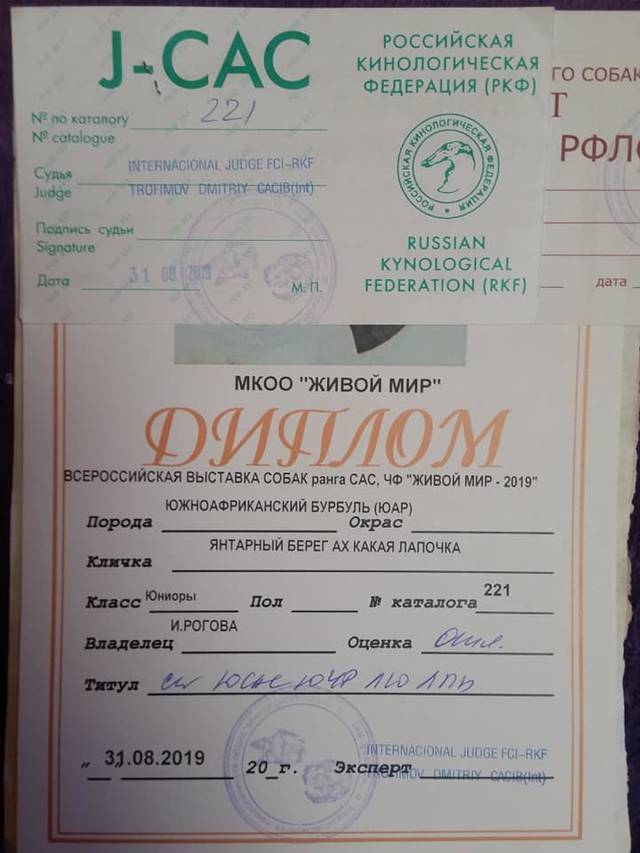 J-CAC
РОССИЙСКАЯ
КИНОЛОГИЧЕСКАЯ
ФЕДЕРАЦИЯ (РКФ)
№ по каталогу 221
№ catalogue
Судья INTERNACIONAL JUDGE FCI-RKF
Judge TROFIMOV DMITRIY CACIB(Int)
Подпись судьи
Signature
Дата 31 08 2019
М. П.
РОССИЙСКАЯ КИНОЛОГИЧЕСКАЯ ФЕДЕРАЦИЯ
RUSSIAN
KYNOLOGICAL
FEDERATION (RKF)
ГО СОБАК
Т
РФЛ
дата
МКОО "ЖИВОЙ МИР"
ДИПЛОМ
ВСЕРОССИЙСКАЯ ВЫСТАВКА СОБАК ранга САС, ЧФ "ЖИВОЙ МИР - 2019"
ЮЖНОАФРИКАНСКИЙ БУРБУЛЬ (ЮАР)
Порода Окрас
ЯНТАРНЫЙ БЕРЕГ АХ КАКАЯ ЛАПОЧКА
Кличка
Класс Юниоры Пол № каталога 221
И.РОГОВА
Владелец Оценка Отл.
Титул
„ 31.08.2019 20_г. Эксперт
INTERNACIONAL JUDGE FCI-RKF
TROFIMOV DMITRIY CACIB(Int)